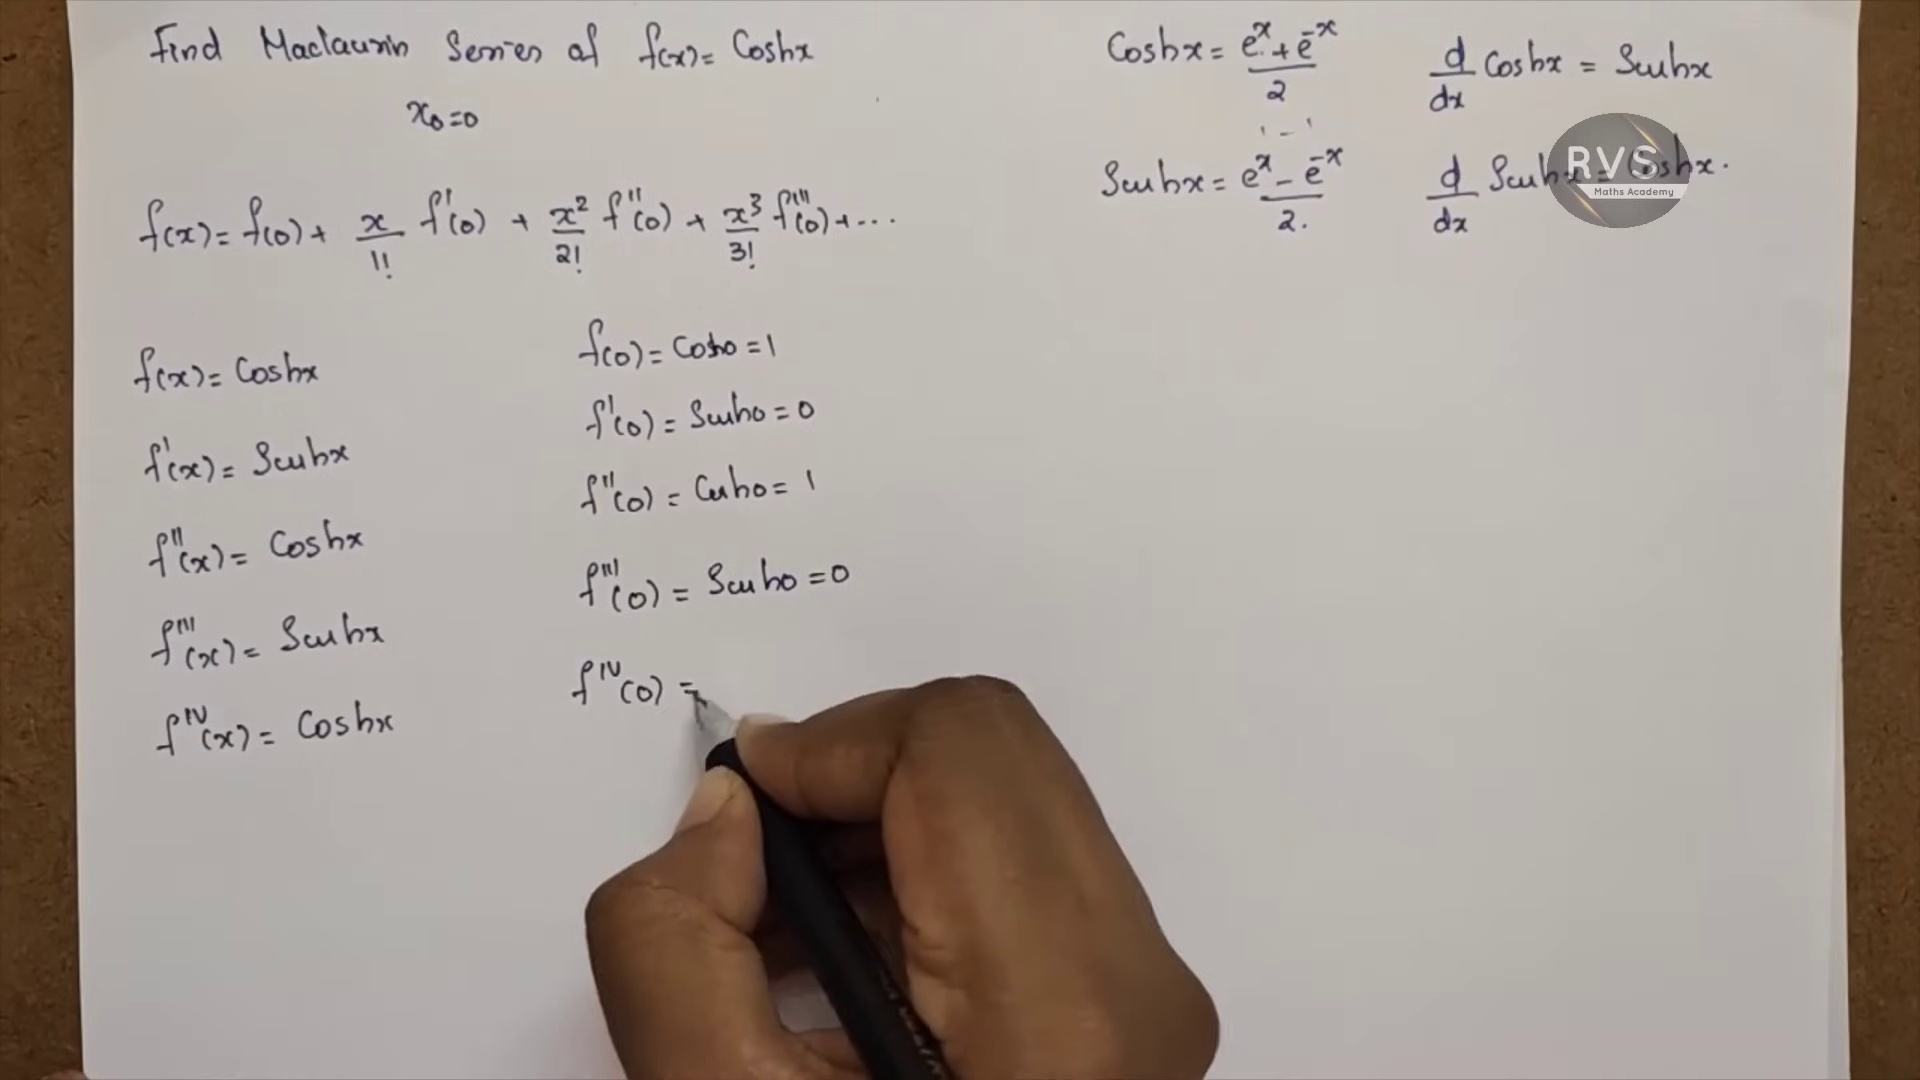 Find Maclaurin Series of f(x) = Coshx
x₀=0
f(x) = f(0) + x/1! f'(0) + x²/2! f''(0) + x³/3! f'''(0) + ...
f(x) = Coshx
f'(x) = Sinhx
f''(x) = Coshx
f'''(x) = Sinhx
f^IV(x) = Coshx
f(0) = Cosh0 = 1
f'(0) = Sinh0 = 0
f''(0) = Cosh0 = 1
f'''(0) = Sinh0 = 0
f^IV(0) =
Coshx = (e^x + e^-x)/2
Sinhx = (e^x - e^-x)/2.
d/dx Coshx = Sinhx
d/dx Sinhx = Coshx.
RVS
Maths Academy